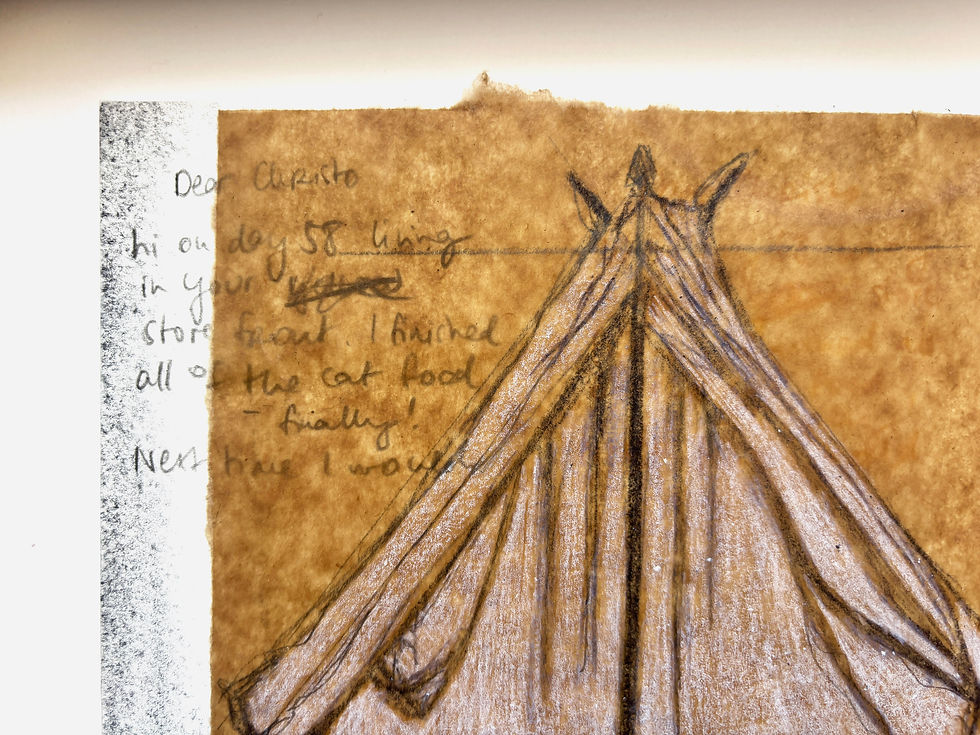 Dear Christo
hi on day 58 living
in your
store front. I finished
all of the cat food
- finally!
Next time I would